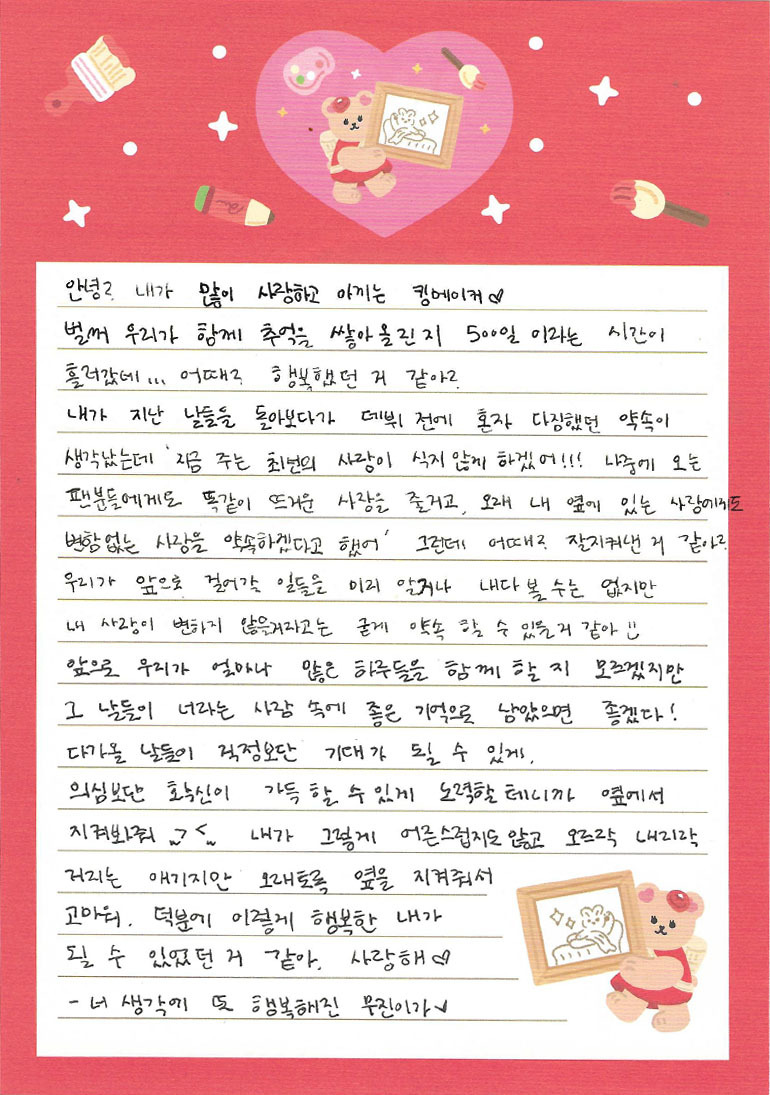 안녕? 내가 많이 사랑하고 아끼는 킹메이커♡
벌써 우리가 함께 추억을 쌓아올린지 500일 이라는 시간이
흘러갔네... 어때? 행복했던 거 같아?
내가 지난 날들을 돌아보다가 데뷔 전에 혼자 다짐했던 약속이
생각났는데 '지금 주는 최선의 사랑이 식지 않게 하겠어!!! 나중에 오는
팬분들에게도 똑같이 뜨거운 사랑을 줄거고, 오래 내 옆에 있는 사람에게도
변함없는 사랑을 약속하겠다고 했어' 그런데 어때? 잘지켜낸 거 같아?
우리가 앞으로 걸어갈 일들을 미리 알거나 내다 볼 수는 없지만
내 사랑이 변하지 않을거라고는 굳게 약속 할 수 있을거 같아 !!
앞으로 우리가 얼마나 많은 하루들을 함께 할 지 모르겠지만
그 날들이 너라는 사람 속에 좋은 기억으로 남았으면 좋겠다!
다가올 날들이 걱정보단 기대가 될 수 있게,
의심보단 확신이 가득 할 수 있게 노력할 테니까 옆에서
지켜봐줘 내가 그렇게 어른스럽지도 않고 오르락 내리락
거리는 애기지만 오래토록 옆을 지켜줘서
고마워. 덕분에 이렇게 행복한 내가
될 수 있었던 거 같아. 사랑해♡
- 너 생각에 또 행복해진 무진이가♡